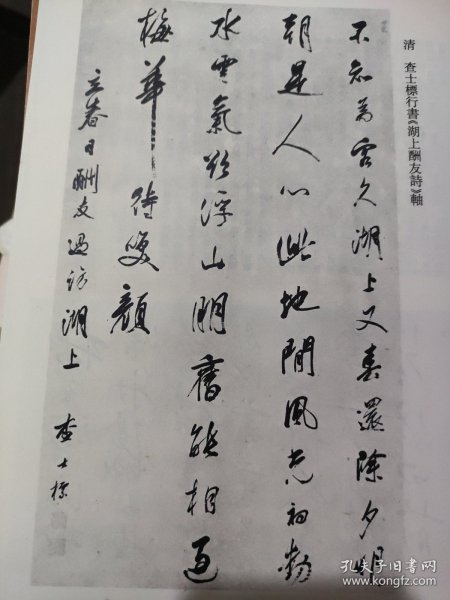 清 查士標行書《湖上酬友詩》軸
不知為客久湖上又春還除夕明
朝是人心此地閒風光初動
水雲氣欲浮山朋舊能相過
梅華待笑顏
立春日酬友過訪湖上 查士標
孔夫子旧书网
www.kongfz.com